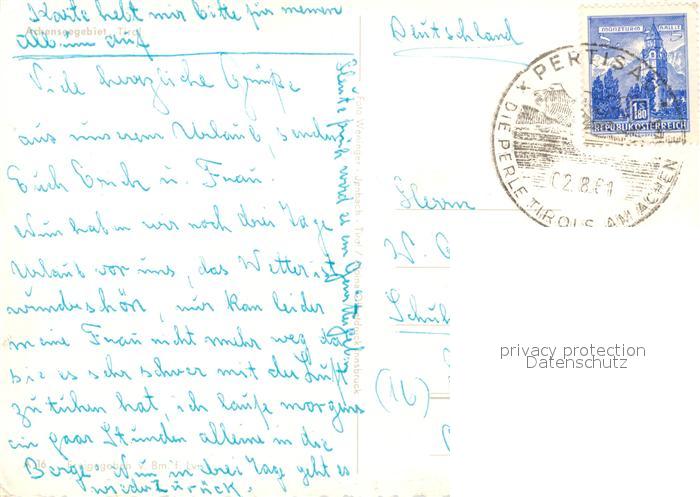 Karte hebt mir bitte für meinen
Album auf
Achenseegebiet Tirol
Viele herzliche Grüße
aus unserem Urlaub, sendet
Euch Erich u. Frau.
Nun haben wir noch drei Tage
Urlaub vor uns, das Wetter ist
wunbeshön, nur kan leider
meine Frau nicht mehr weg da
sie es sehr schwer mit der Luft
zu tuhen hat, ich laufe morgens
ein paar Stunden alleine in die
Berge. Nun in drei Tage geht es
wieder zurück.
Heute früh wird es ein
Freigegeben v. Bm. f. Lv.
Jenbach Tirol
Innsbruck
Deutschland
MÜNZTURM HALL
1.80
REPUBLIK ÖSTERREICH
PERTISAU
DIE PERLE TIROLS AM ACHEN
02.8.61
Herrn
W.
Schul
(16)
privacy protection
Datenschutz